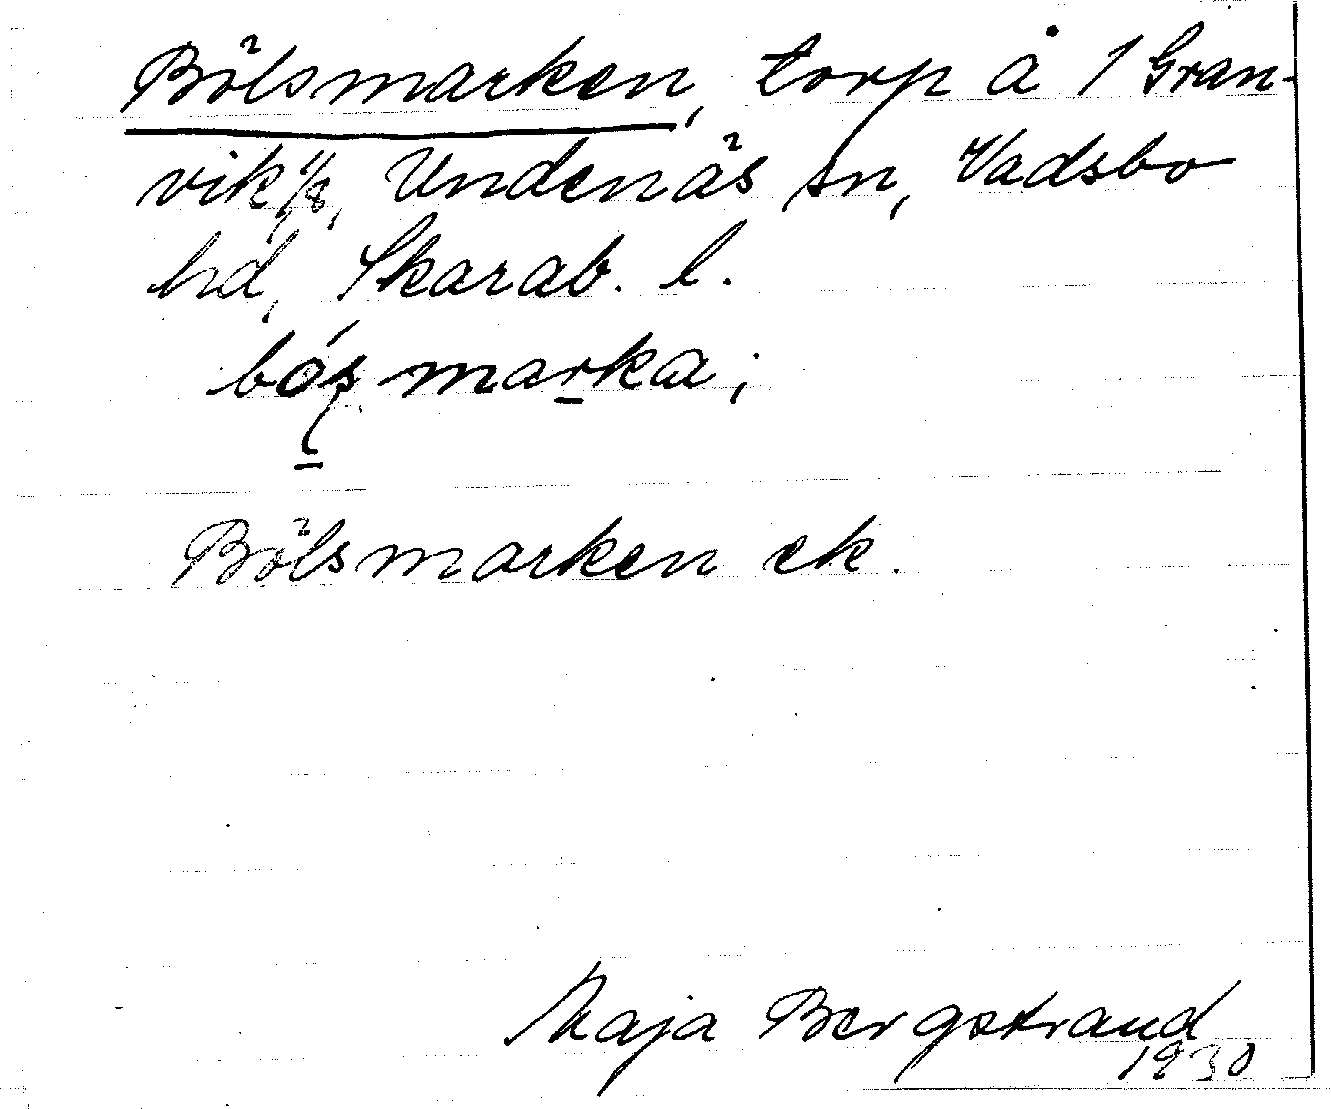 Bölsmarken, torp å 1 Gran-
vik 1/8, Undenäs sn, Vadsbo
hd, Skarab. l.
marka;
Bölsmarken ek.
Maja Bergstrand
1930